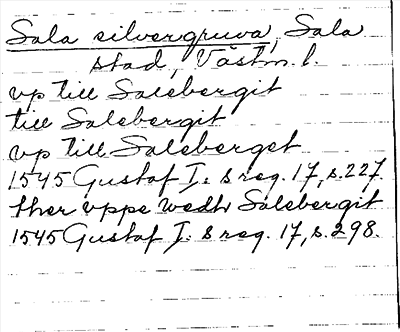 Sala silvergruva, Sala
stad, Västm. l.
vp till Salebergit
till Salebergit
vp till Saleberget
1545 Gustaf I:s reg. 17, s. 227.
ther vppe wedh Salebergit
1545 Gustaf I:s reg. 17, s. 298.